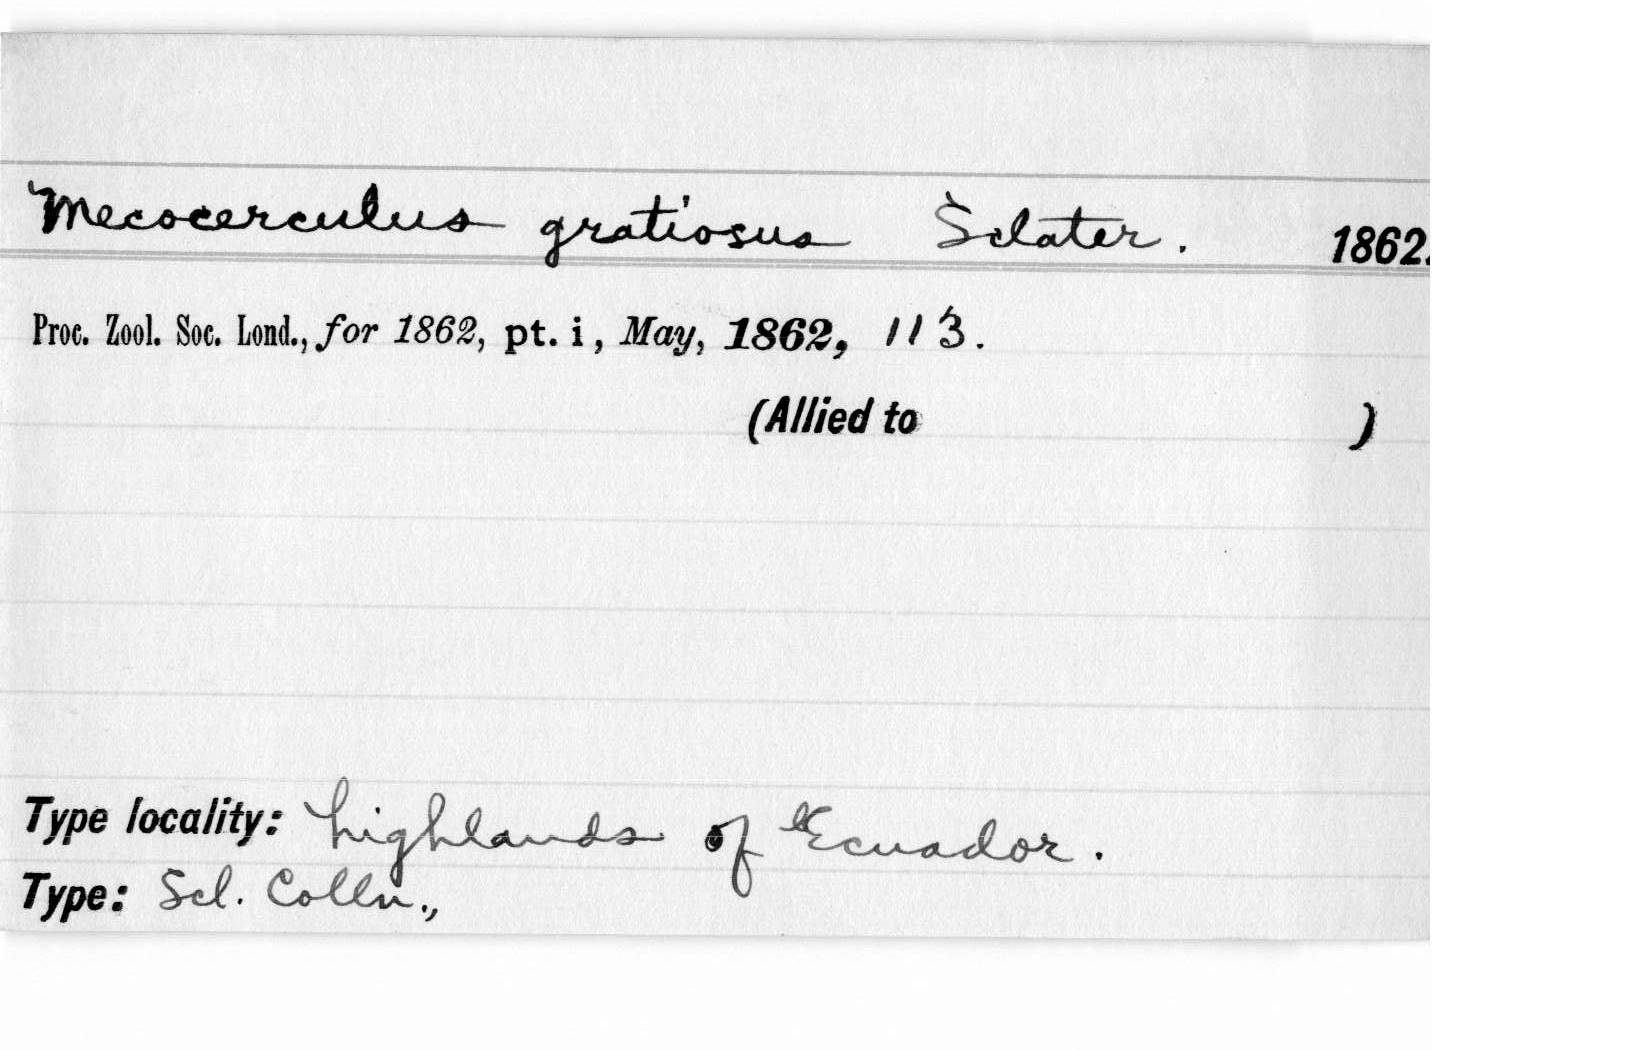 Mecocerculus gratiosus Sclater. 1862.
Proc. Zool. Soc. Lond., for 1862, pt. i, May, 1862, 113.
(Allied to )
Type locality: highlands of Ecuador.
Type: Scl. Colln.,